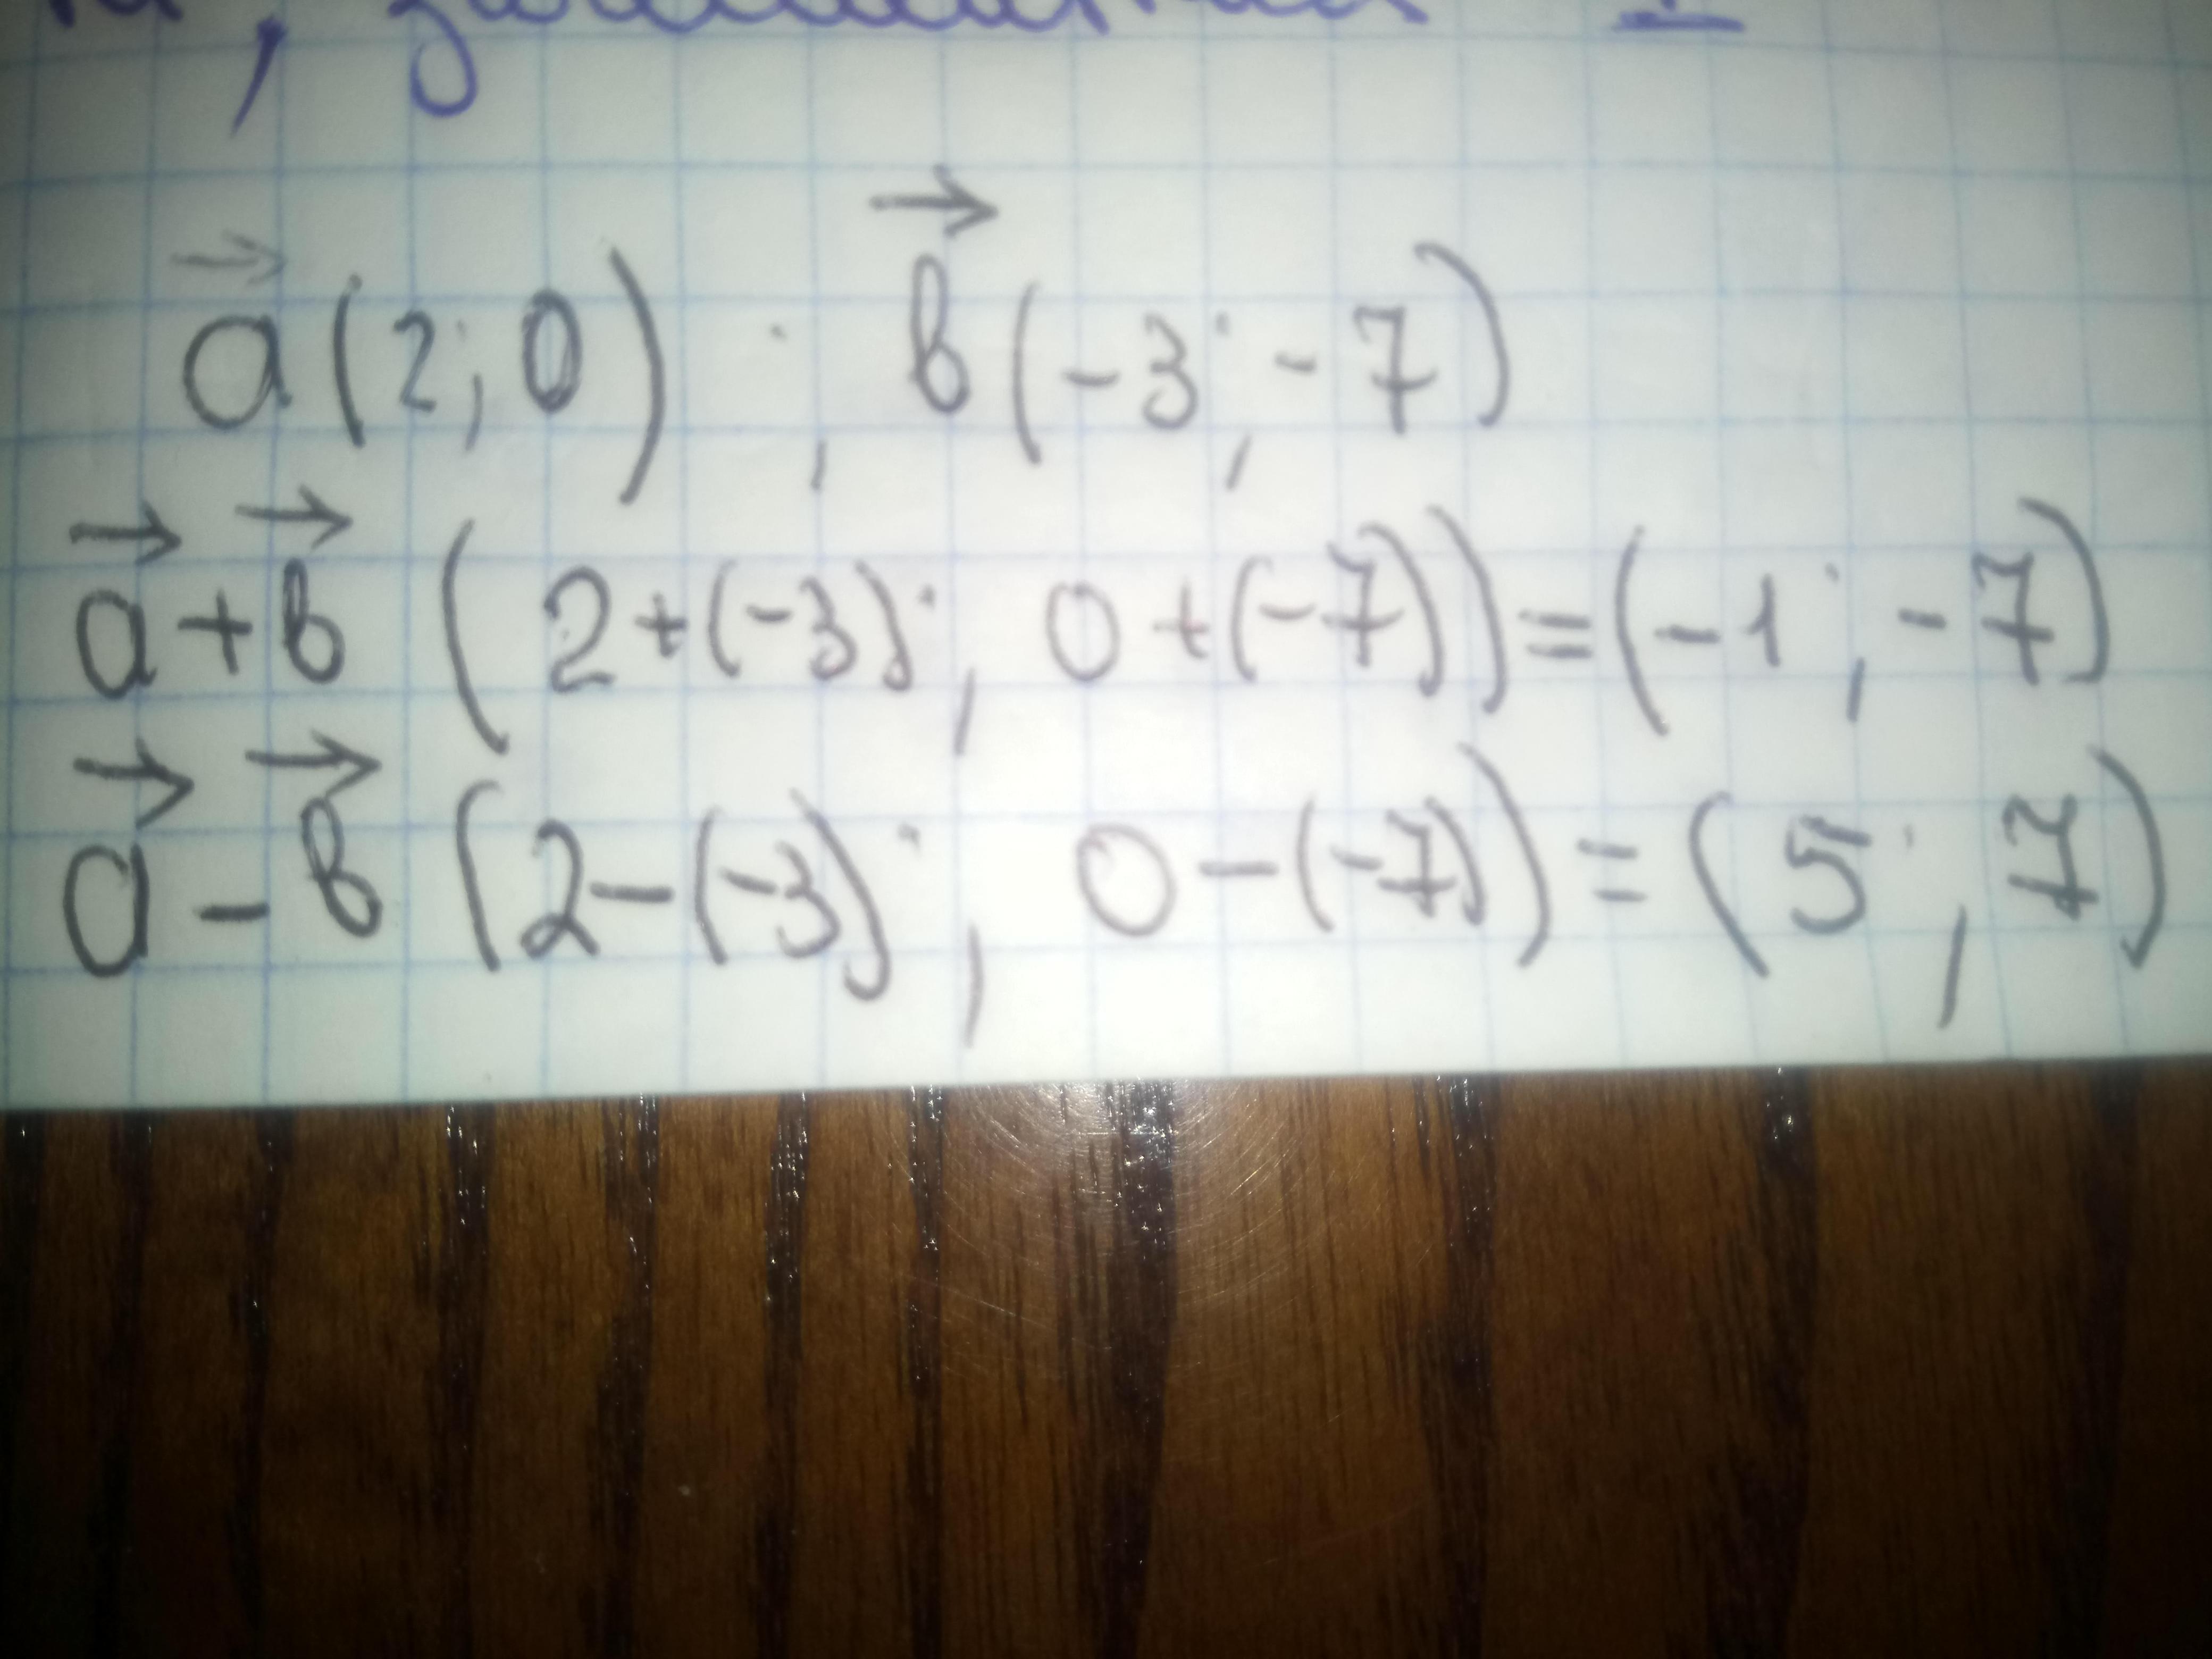 →a(2; 0) ; →b(-3; -7)
→a+→b (2+(-3); 0+(-7))=(-1; -7)
→a-→b (2-(-3); 0-(-7))=(5; 7)